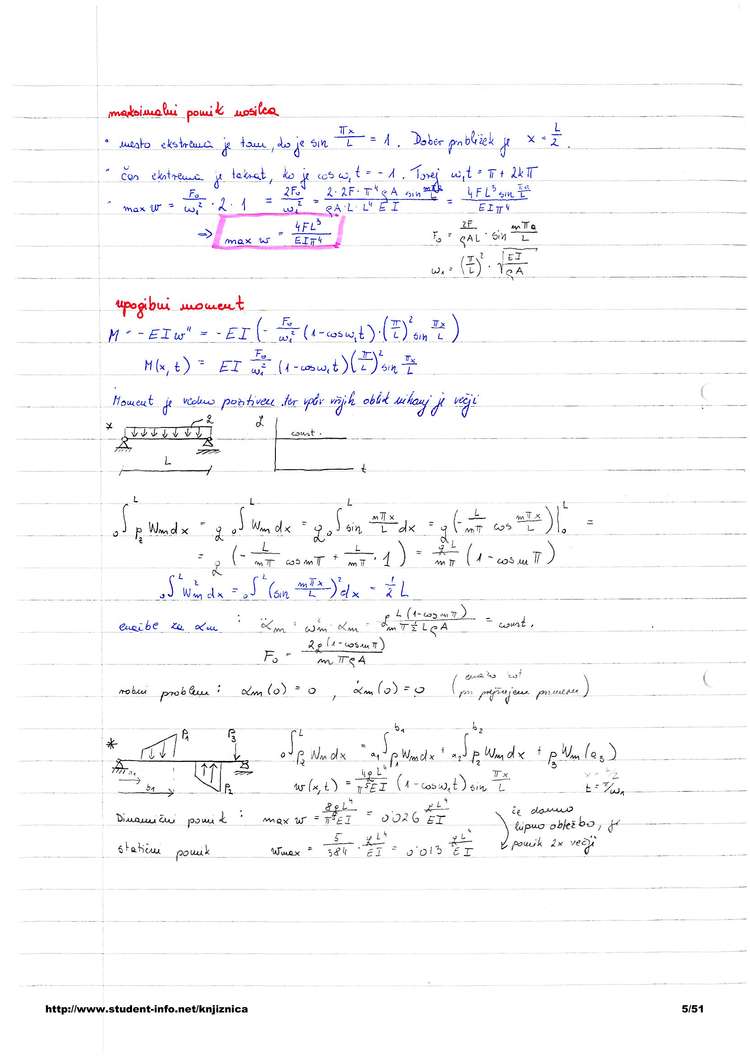 maksimalni pomik nosilca
• mesto ekstrema je tam, do je sin πx/L = 1. Dober približek je x = L/2.
• čas ekstrema je takrat, ko je cos ω₁t = -1. Torej ω₁t = π + 2kπ
• max w = F₀/ω₁² · 2 · 1 = 2F₀/ω₁² = 2·2F·π⁴ρA sin / ρA·L·L⁴EI = 4FL³ sin / EIπ⁴
⇒ max w = 4FL³/EIπ⁴
F₀ = 2F/ρAL · sin mπa/L
ω₁ = (π/L)² · √EI/ρA
upogibni moment
M = -EIw'' = -EI(-F₀/ω₁² (1-cosω₁t)·(π/L)² sin πx/L)
M(x,t) = EI F₀/ω₁² (1-cosω₁t)(π/L)² sin πx/L
Moment je vedno pozitiven ter vpliv višjih oblik nihanj je večji
* q
L
const.
t
₀∫ᴸ p_z Wm dx = q ₀∫ᴸ Wm dx = q ₀∫ᴸ sin mπx/L dx = q(-L/mπ cos mπx/L)|₀ᴸ =
= q(-L/mπ cos mπ + L/mπ · 1) = qL/mπ (1-cos mπ)
₀∫ᴸ Wm² dx = ₀∫ᴸ (sin mπx/L)² dx = 1/2 L
enačbe za αm : α̈m + ωm² αm = q L(1-cos mπ) / mπ ½ L ρA = const.
F₀ = 2q(1-cosmπ) / mπρA
robni problem : αm(0) = 0 , α̇m(0) = 0 (enako kot pri prejšnjem primeru)
* P₁ P₃
a₁ b₁ P₂
₀∫ᴸ p_z Wm dx = a₁∫b₁ p₁ Wm dx + a₂∫b₂ p₂ Wm dx + p₃ Wm(a₃)
w(x,t) = 4qL⁴/π⁵EI (1-cosω₁t) sin πx/L
t = π/ω₁
Dinamični pomik : max w = 8qL⁴/π⁵EI = 0'026 qL⁴/EI
statični pomik Wmax = 5/384 · qL⁴/EI = 0'013 qL⁴/EI
če damo
hipno obtežbo, je
pomik 2x večji
http://www.student-info.net/knjiznica 5/51